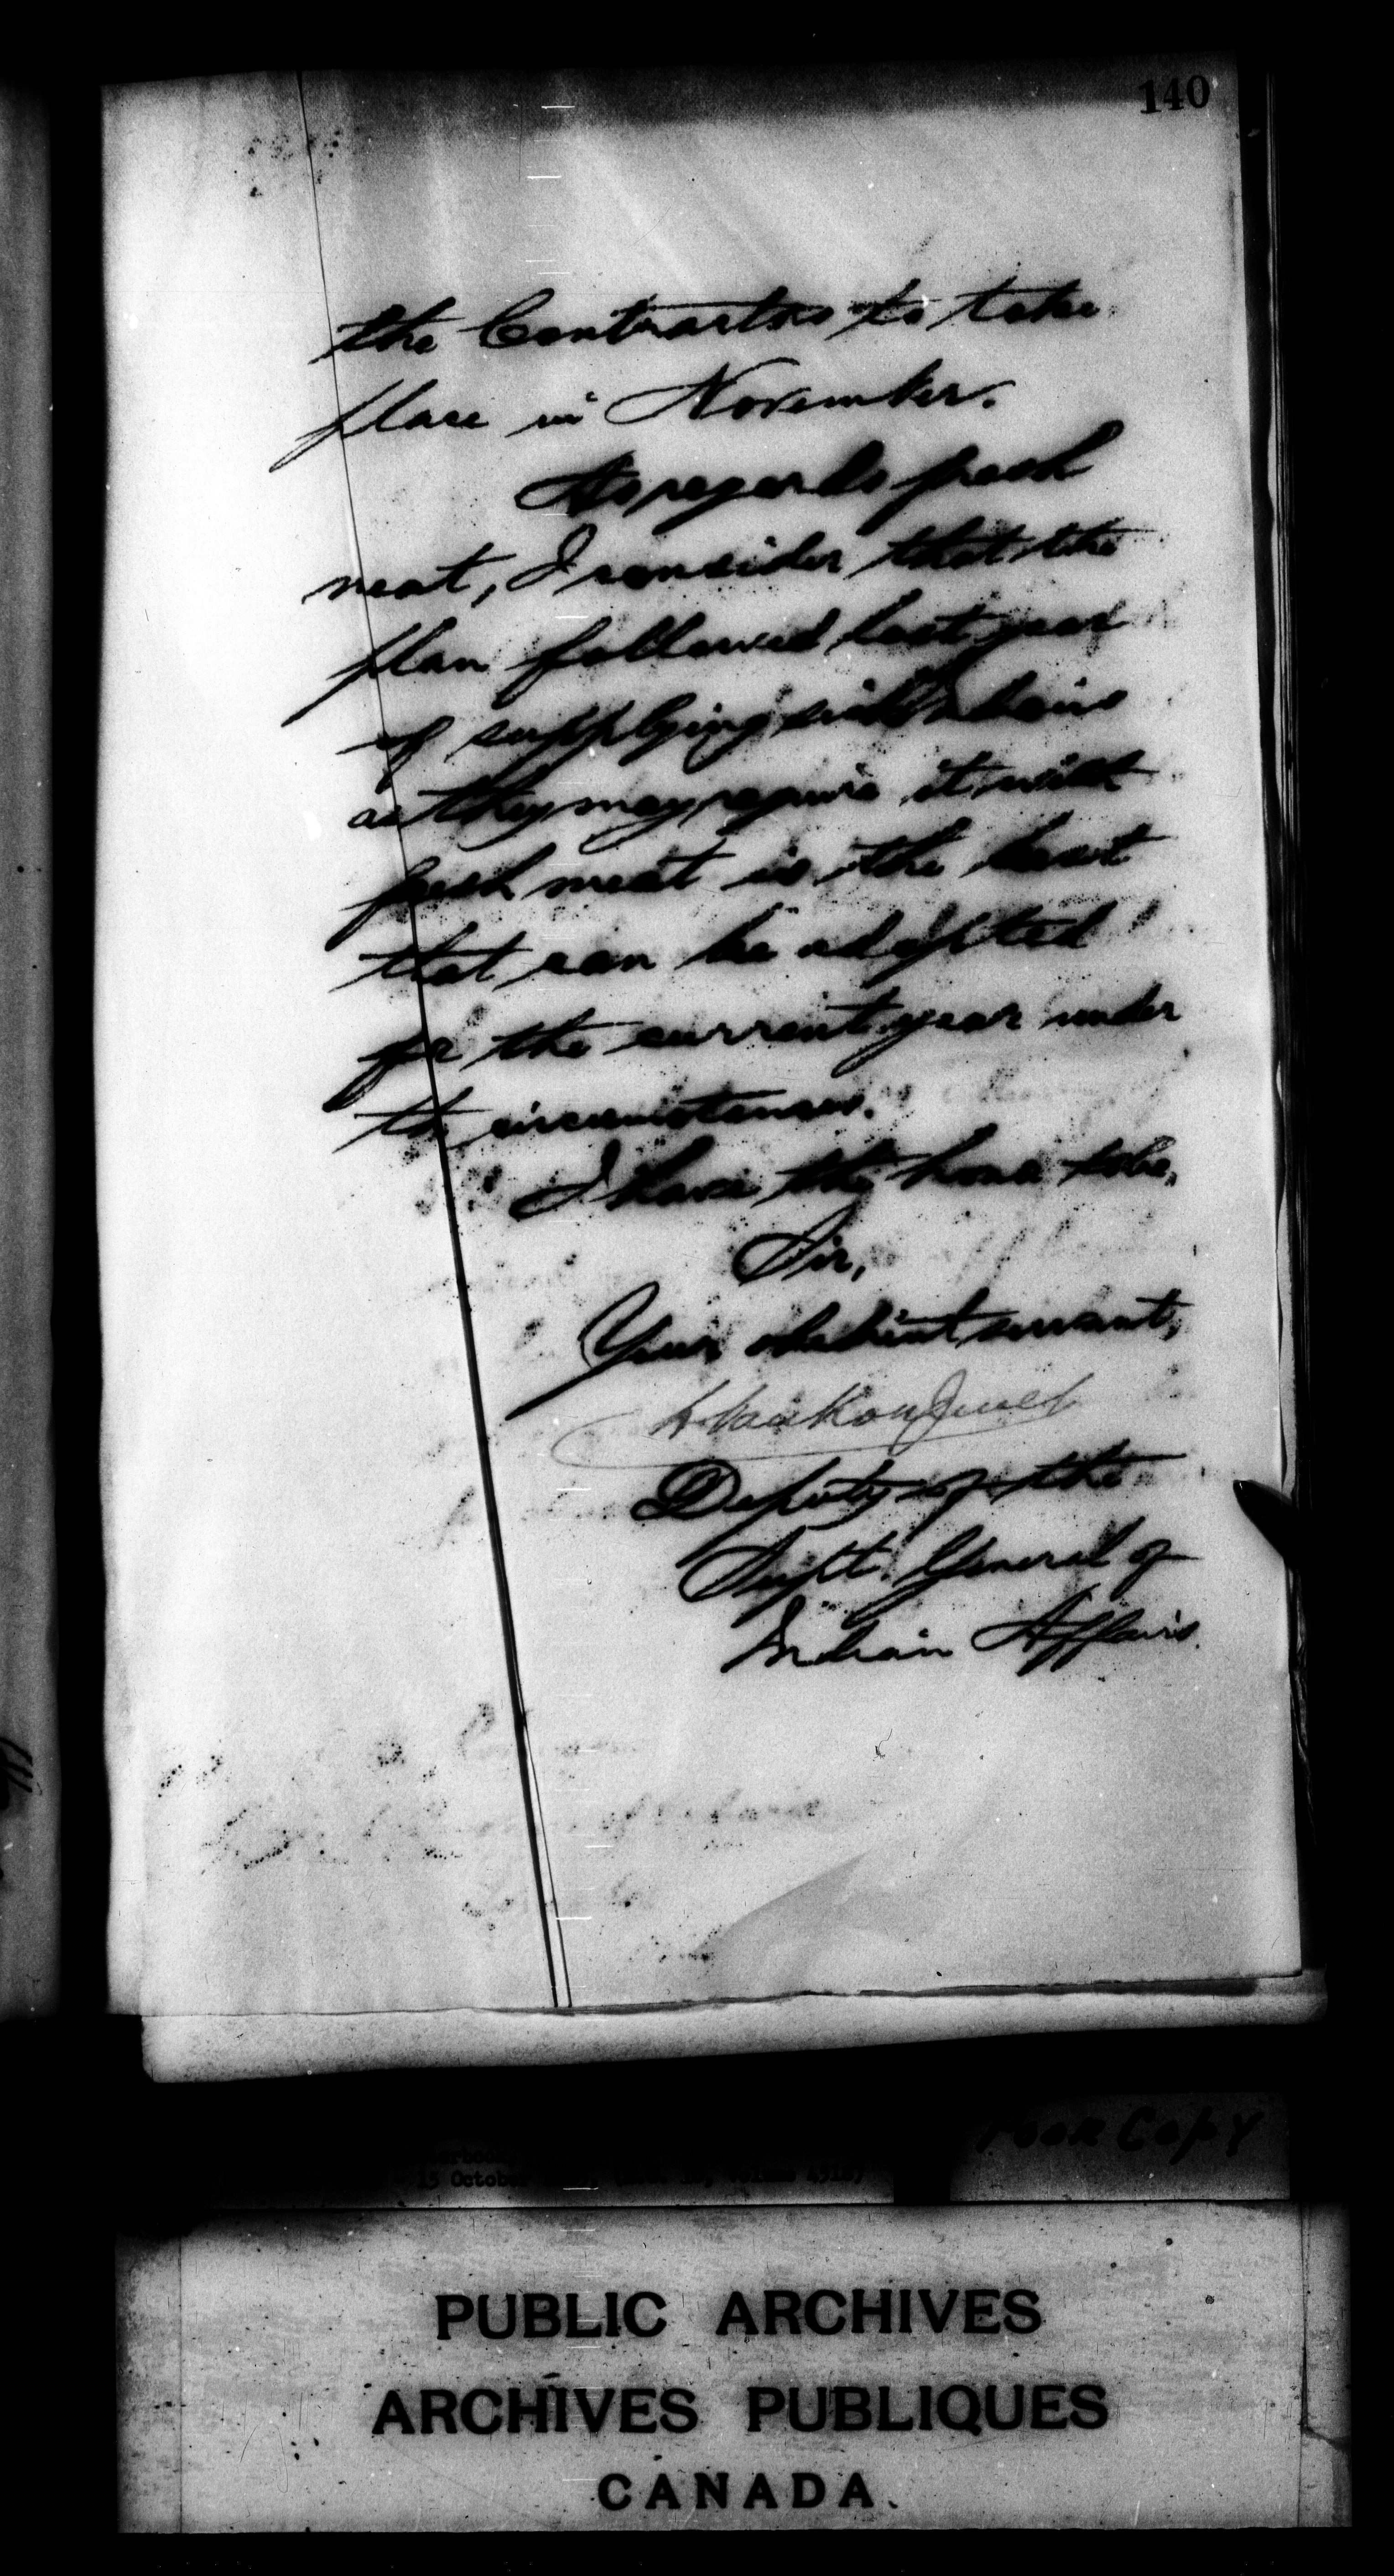 140
the Contractors to take
place in November.
As regards fresh
meat, I consider that the
plan followed last year
of supplying sick Indians
as they may require it with
fresh meat is the best
that can be adopted
for the current year under
the circumstances.
I have the honor to be,
Sir,
Your obedient servant,
L. VanKoughnet
Deputy of the
Supt. General of
Indian Affairs.
Poor Copy
13 October
PUBLIC ARCHIVES
ARCHIVES PUBLIQUES
CANADA